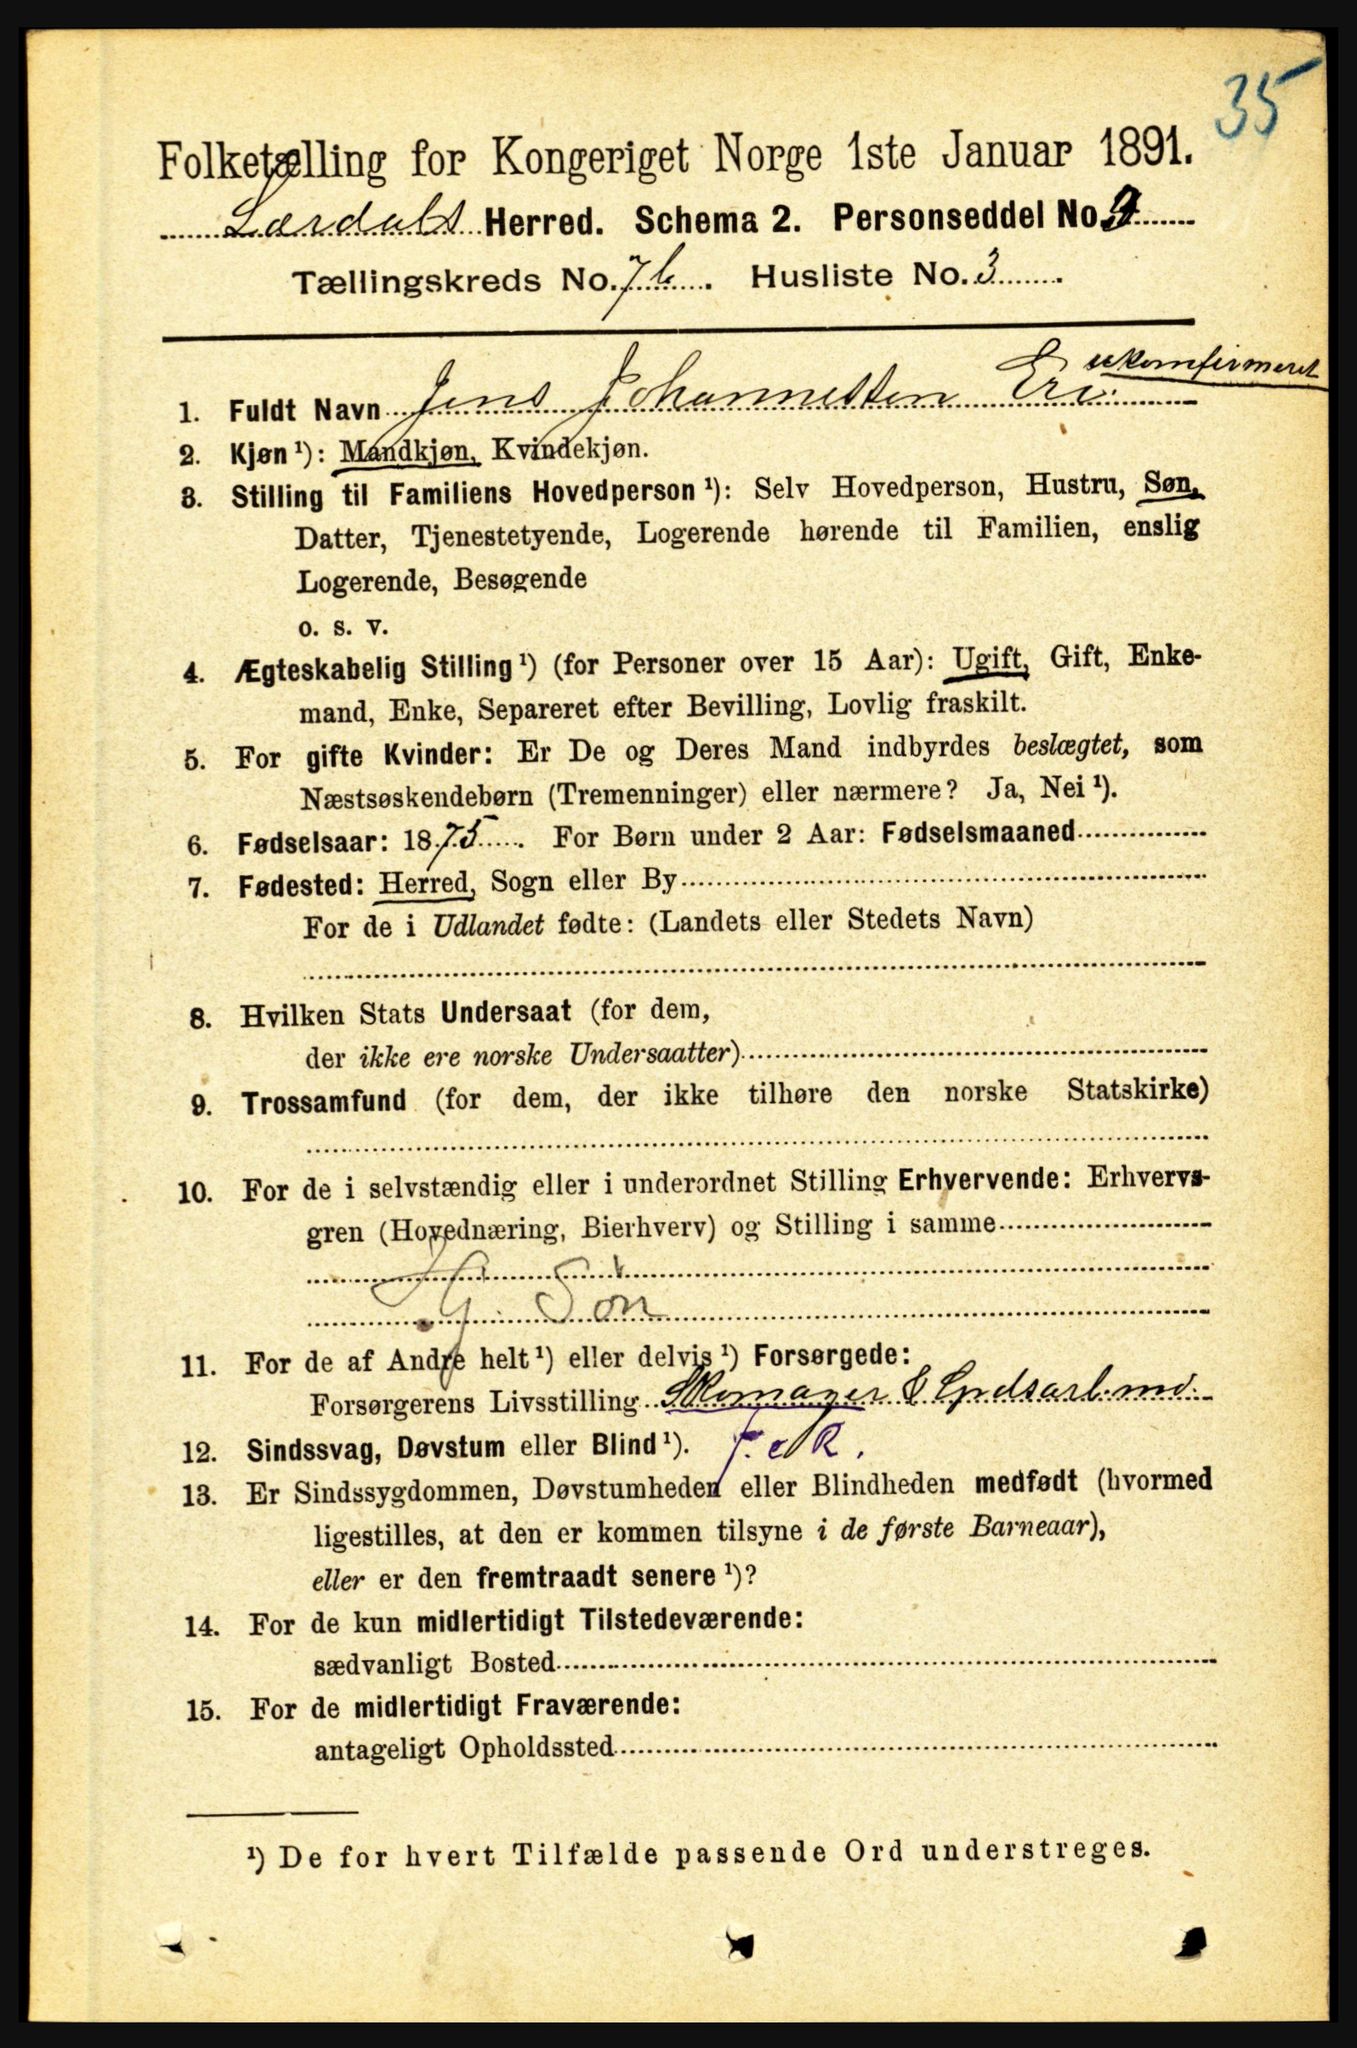 35
Folketælling for Kongeriget Norge 1ste Januar 1891.
Lærdals Herred. Schema 2. Personseddel No. 9
Tællingskreds No. 7b. Husliste No. 3.
ukonfirmeret
1. Fuldt Navn Jens Johannessen Eri.
2. Kjøn ¹): Mandkjøn, Kvindekjøn.
3. Stilling til Familiens Hovedperson ¹): Selv Hovedperson, Hustru, Søn,
Datter, Tjenestetyende, Logerende hørende til Familien, enslig
Logerende, Besøgende
o. s. v.
4. Ægteskabelig Stilling ¹) (for Personer over 15 Aar): Ugift, Gift, Enke-
mand, Enke, Separeret efter Bevilling, Lovlig fraskilt.
5. For gifte Kvinder: Er De og Deres Mand indbyrdes beslægtet, som
Næstsøskendebørn (Tremenninger) eller nærmere? Ja, Nei ¹).
6. Fødselsaar: 1875. For Børn under 2 Aar: Fødselsmaaned
7. Fødested: Herred, Sogn eller By
For de i Udlandet fødte: (Landets eller Stedets Navn)
8. Hvilken Stats Undersaat (for dem,
der ikke ere norske Undersaatter)
9. Trossamfund (for dem, der ikke tilhøre den norske Statskirke)
10. For de i selvstændig eller i underordnet Stilling Erhvervende: Erhvervs-
gren (Hovednæring, Bierhverv) og Stilling i samme
Søn
11. For de af Andre helt ¹) eller delvis ¹) Forsørgede:
Forsørgerens Livsstilling Skomager &
12. Sindssvag, Døvstum eller Blind ¹).
13. Er Sindssygdommen, Døvstumheden eller Blindheden medfødt (hvormed
ligestilles, at den er kommen tilsyne i de første Barneaar),
eller er den fremtraadt senere ¹)?
14. For de kun midlertidigt Tilstedeværende:
sædvanligt Bosted
15. For de midlertidigt Fraværende:
antageligt Opholdssted
¹) De for hvert Tilfælde passende Ord understreges.